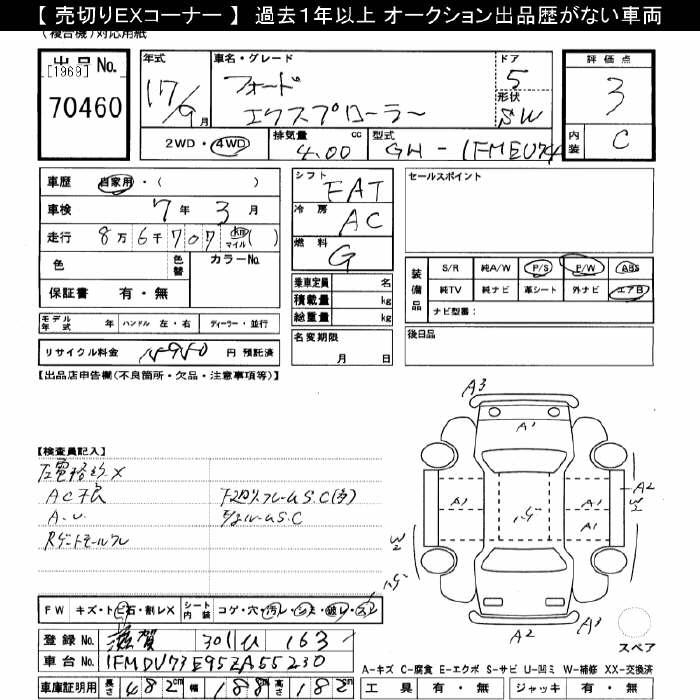 【 売切りEXコーナー 】 過去1年以上 オークション出品歴がない車両
(複合機)対応用紙
出品No.
[1969]
70460
年式
17/9月
車名・グレード
フォード
エクスプローラー
ドア
5
形状
SW
評価点
3
内装
C
2WD・4WD
排気量 4.00 cc
型式 GH - 1FMEU74
車歴 自家用・( )
車検 7年 3月
走行 8万6千707 km マイル ( )
色 色替 カラーNo.
保証書 有・無
シフト FAT
冷房 AC
燃料 G
乗車定員 名
積載量 kg
総重量 kg
セールスポイント
装備品
S/R 純A/W P/S P/W ABS
純TV 純ナビ 革シート 外ナビ エアB
ナビ型番:
モデル年式 年 ハンドル 左・右 ディーラー・並行
名変期限 月 日
後日品
リサイクル料金 円 預託済
【出品店申告欄(不良箇所・欠品・注意事項等)】
A3
A1
【検査員記入】
A.U.
A1 A1 A2
A1
W2 W2
ハゲ
ハゲ
A2 A3
FW キズ・トビ石・割レX シート内装 コゲ・穴・汚レ・シミ・破レ・スレ
スペア
登録No. 滋賀 301 い 163
車台No. 1FMDU73E95ZA55230
A-キズ C-腐食 E-エクボ S-サビ U-凹ミ W-補修 XX-交換済
車庫証明用 長さ 482cm 幅 188cm 高さ 182cm
工具 有・無 ジャッキ 有・無